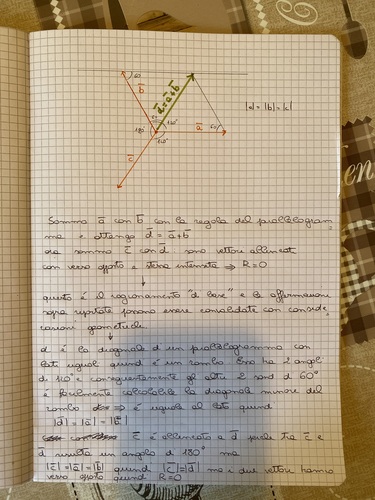 60
b
d = a + b
|a| = |b| = |c|
60
120°
180°
60
a
120°
c
Sommo a con b con la regola del parallelogram
ma e ottengo d = a + b
ora sommo c con d sono vettori allineati
con verso opposto e stessa intensità ⇒ R = 0
↓
questo è il ragionamento "di base" e le affermazioni
sopra riportate possono essere convalidate con conside
razioni geometriche
↓
d è la diagonale di un parallelogramma con
lati uguali quindi è un rombo. Esso ha 2 angoli
di 120° e conseguentemente gli altri 2 sono di 60°
è facilmente calcolabile la diagonale minore del
rombo ⇒ è uguale al lato quindi
|d| = |a| = |b|
c è allineato a d perché tra c e
d risulta un angolo di 180° ma
|c| = |a| = |b| quindi |c| = |d| ma i due vettori hanno
verso opposto quindi R = 0